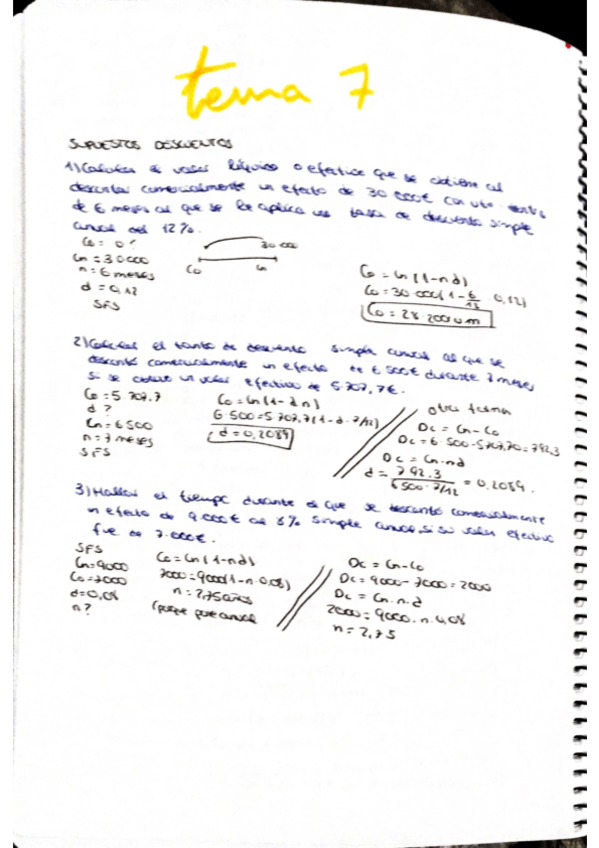 tema 7
SUPUESTOS DESCUENTOS
1) Calcular el valor líquido o efectivo que se obtiene al
descontar comercialmente un efecto de 30 000€ con vto. dentro
de 6 meses al que se le aplica una tasa de descuento simple
anual del 12%.
Co = 0?
Cn = 30 000
n = 6 meses
d = 0,12
SFS
30 000
Co Cn
Co = Cn (1 - nd)
Co = 30 000 (1 - 6/12 0,12)
Co = 28 200 um
2) Calcular el tanto de descuento simple anual al que se
descontó comercialmente un efecto de 6 500€ durante 7 meses
si se obtuvo un valor efectivo de 5.707,7€.
Co = 5 707,7
d?
Cn = 6500
n = 7 meses
SFS
Co = Cn (1 - dn)
6.500 = 5.707,7 (1 - d · 7/12)
d = 0,2089
otra forma
Dc = Cn - Co
Dc = 6.500 - 5707,70 = 792,3
Dc = Cn · nd
d = 792,3 / 6500 · 7/12 = 0,2089.
3) Hallar el tiempo durante el que se descontó comercialmente
un efecto de 9.000€ al 8% simple anual, si su valor efectivo
fue de 7.000€.
SFS
Cn = 9000
Co = 7000
d = 0,08
n?
Co = Cn (1 - nd)
7000 = 9000 (1 - n · 0,08)
n = 2,75 años
(porque pone anual
Dc = Cn - Co
Dc = 9000 - 7000 = 2000
Dc = Cn · n · d
2000 = 9000 · n · 0,08
n = 2,75